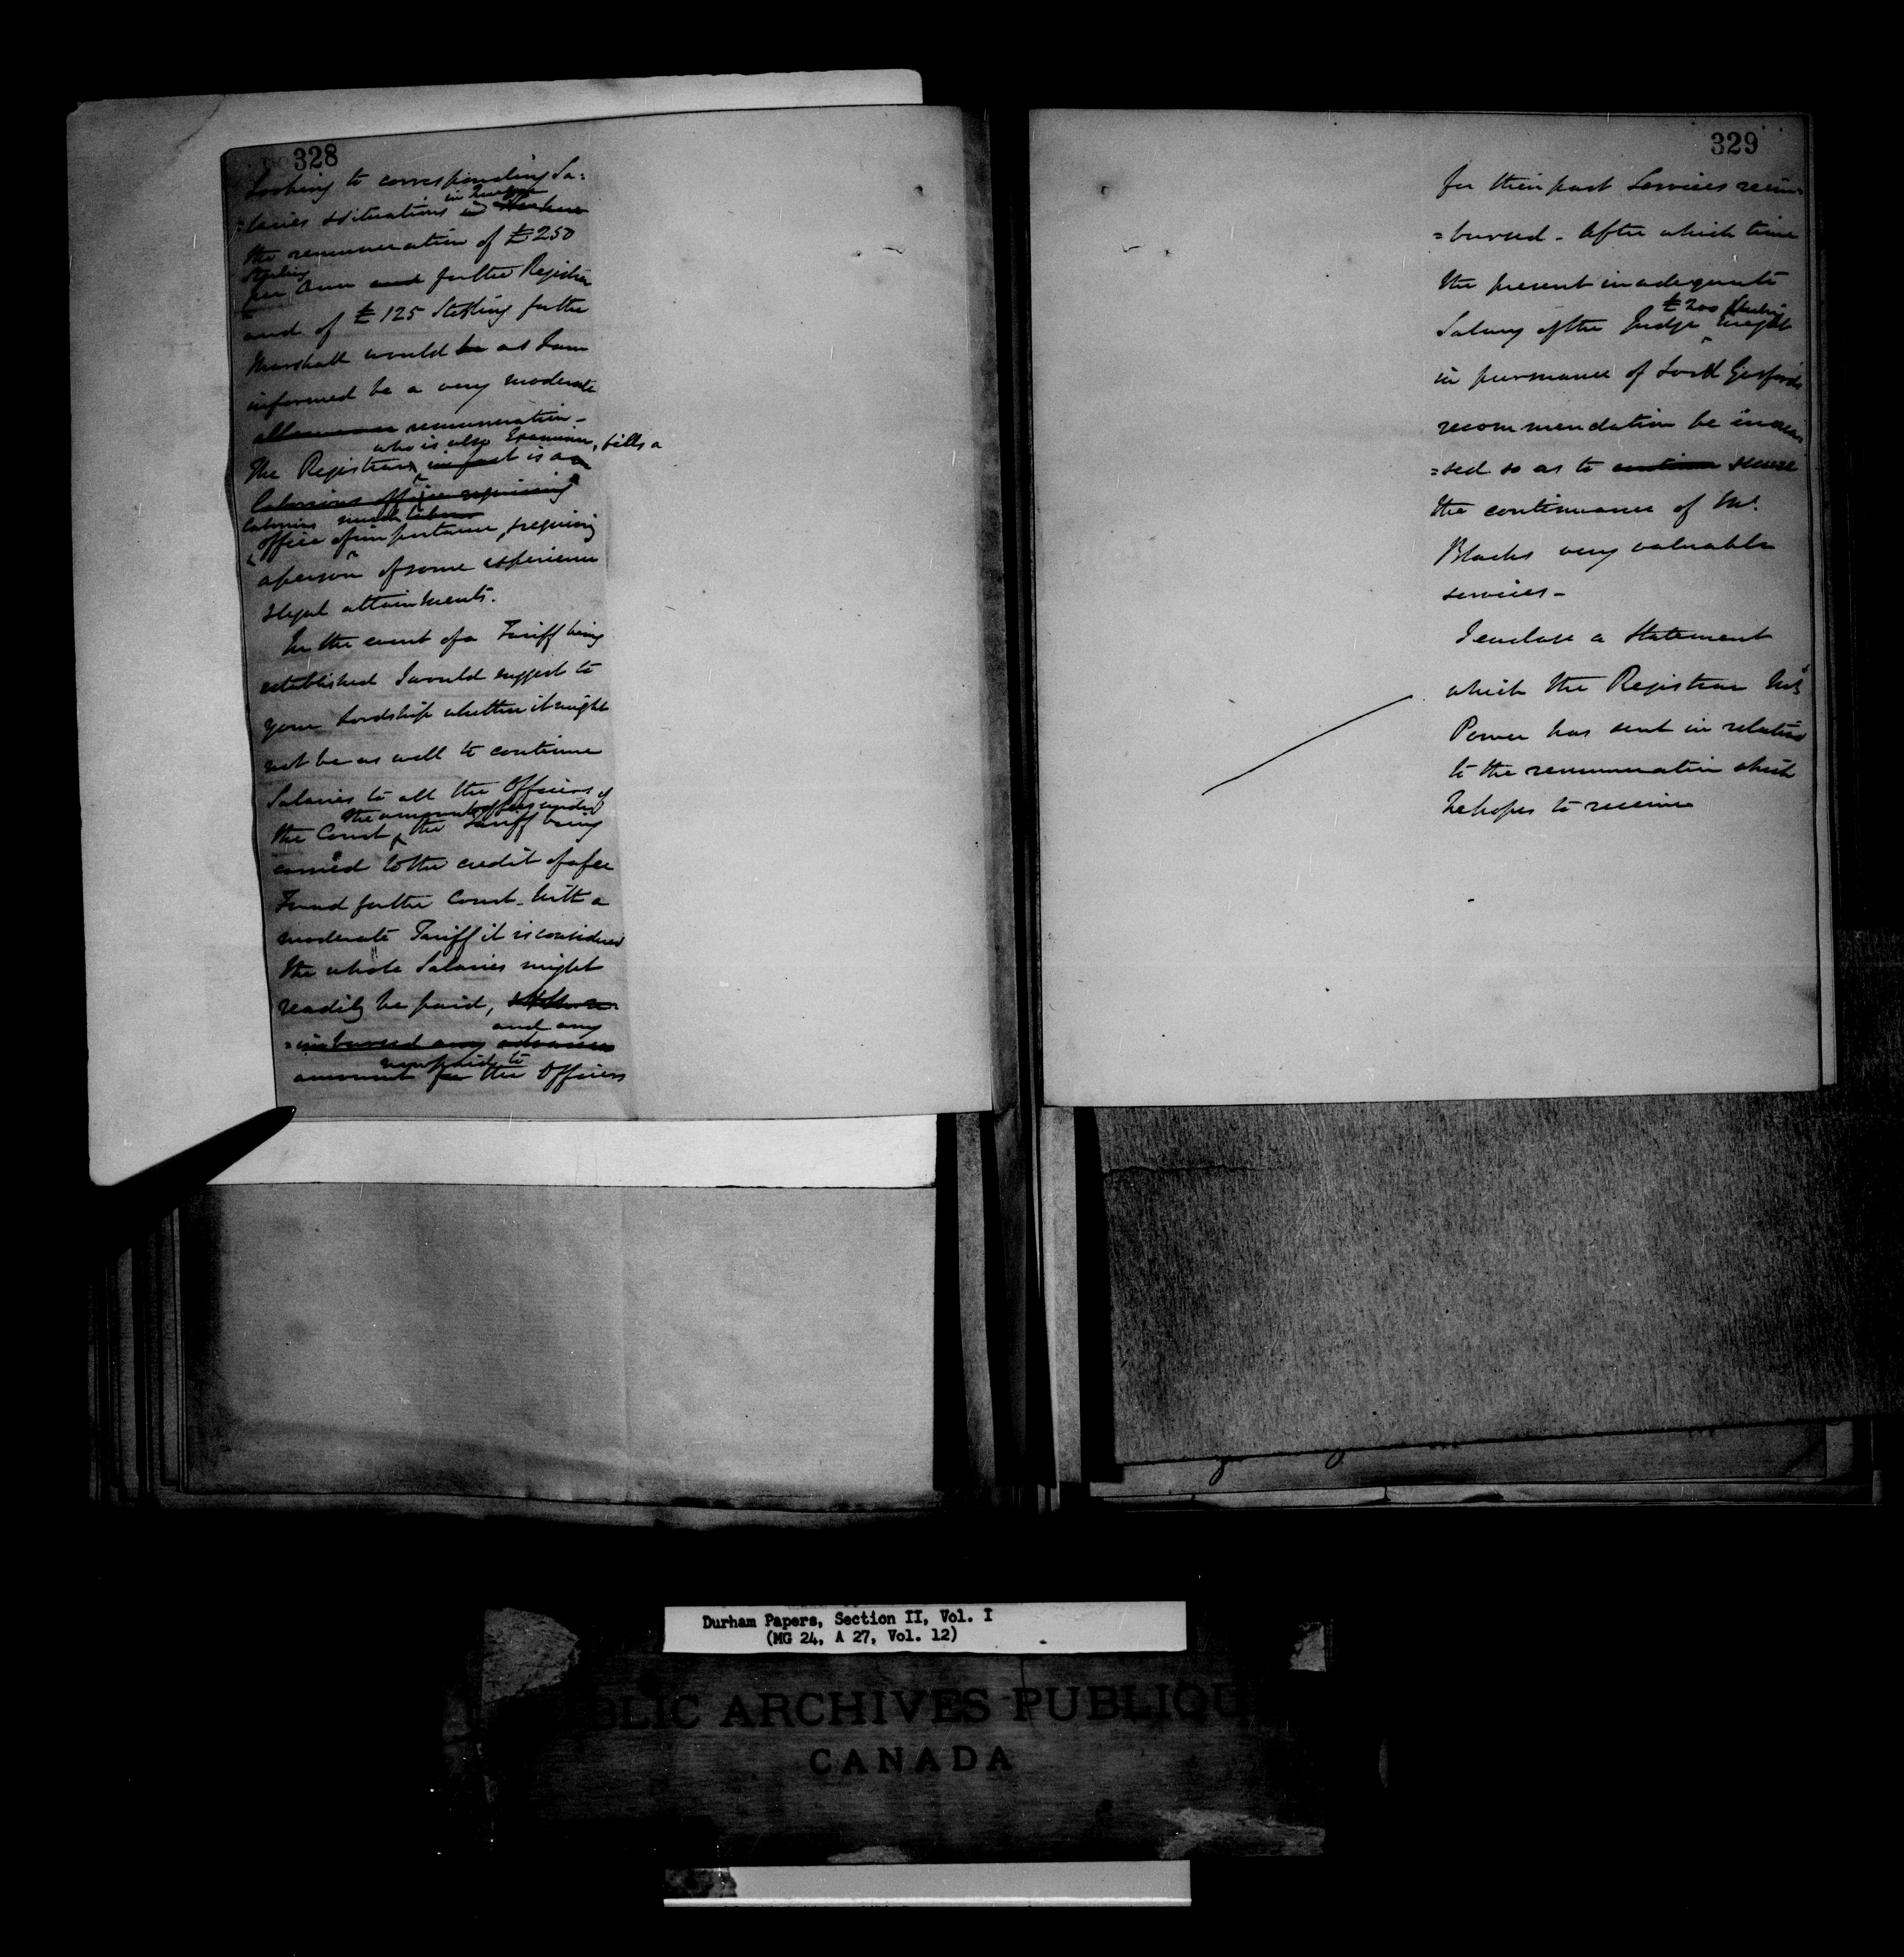 328
Looking to corresponding Sa:
=laries & situations in Quebec
the remuneration of £250
Sterling
per Ann and for the Registrar
and of £125 Sterling for the
Marshall would be as I am
informed be a very moderate
allowance remuneration –
who is also Examiner, fills a
The Registrar in fact is a
laborious office requiring
laborious much labour
office of importance, requiring
a person of some experience
& legal attainments.
In the event of a Tariff being
established I would suggest to
your Lordship whether it might
not be as well to continue
Salaries to all the Officers of
the amount of fees under
the Court, the Tariff being
carried to the credit of a fee
Fund for the Court. With a
moderate Tariff it is considered
the whole Salaries might
readily be paid,
and any
=imbursed any advances
now paid to
amount for the Officers
329
for their past Services reim=
=bursed – After which time
the present inadequate
£200 Sterling
Salary of the Judge might
in pursuance of Lord Gosfords
recommendation be increa
=sed so as to continue secure
the continuance of Mr.
Blacks very valuable
services –
I enclose a Statement
which the Registrar Mr.
Power has sent in relation
to the remuneration which
he hopes to receive
Durham Papers, Section II, Vol. I
(MG 24, A 27, Vol. 12)
BLIC ARCHIVES PUBLIQU
CANADA